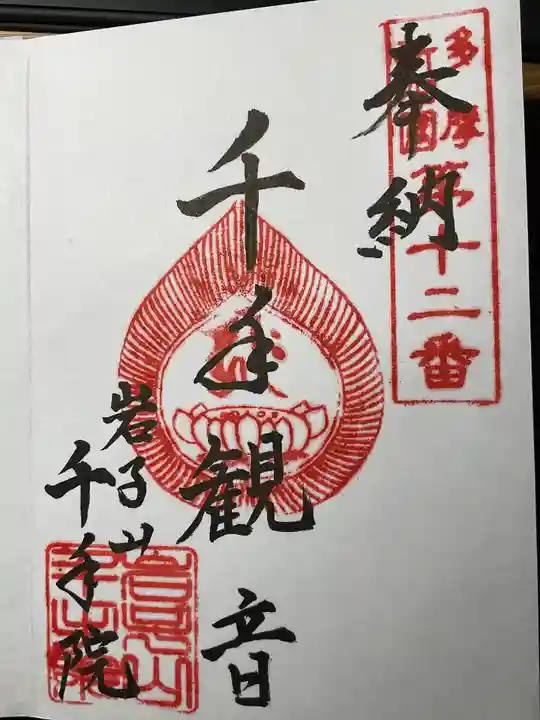 多摩新四国第十二番
奉納
千手観音
岩子山
千手院